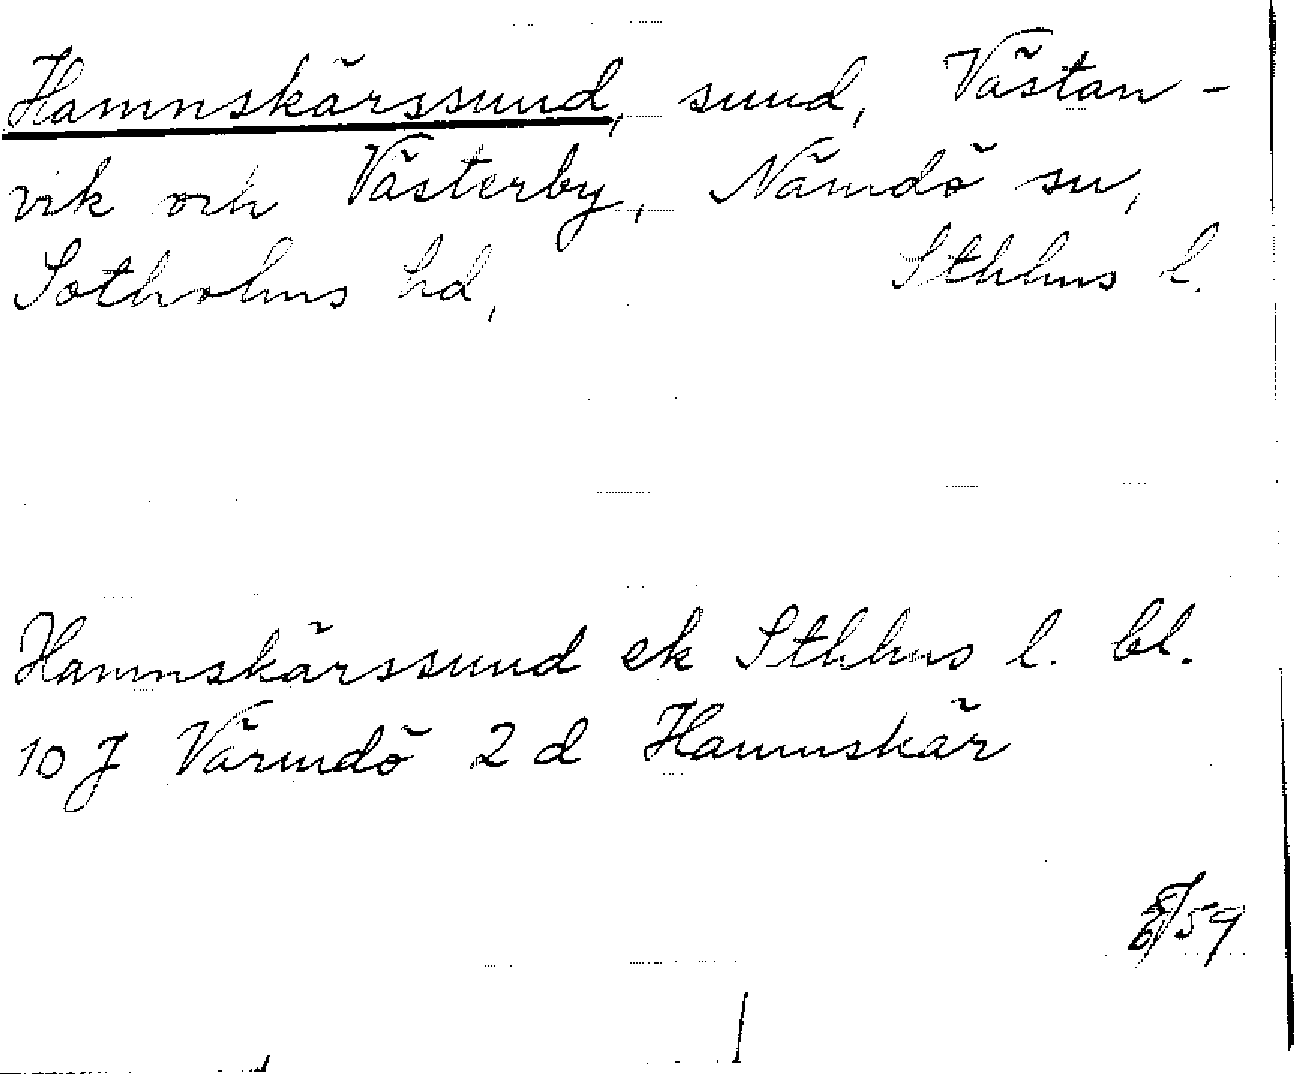 Hamnskärssund, sund, Västan-
vik och Västerby, Nämdö sn,
Sotholms hd, Sthlms l.
Hamnskärssund ek Sthlms l. bl.
10 J Värmdö 2 d Hamnskär